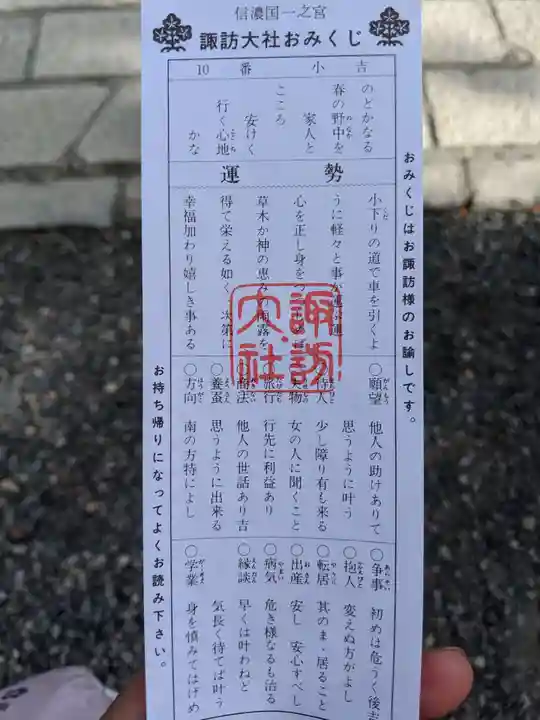 信濃国一之宮
諏訪大社おみくじ
10番 小吉
のどかなる
春の野中を
家人と
こころ
安けく
行く心地
かな
運勢
小下りの道で車を引くよ
うに軽々と事が運ぶ運
心を正し身をつ
草木が神の恵みの雨露を
得て栄える如く 次第に
幸福加わり嬉しき事ある
○願望 他人の助けありて
思うように叶う
○待人 少し障り有も来る
○失物 女の人に聞くこと
○旅行 行先に利益あり
○商法 他人の世話あり吉
○養蚕 思うように出来る
○方向 南の方特によし
○争事 初めは危うく後吉
○抱人 変えぬ方がよし
○転居 其のまゝ居ること
○出産 安し 安心すべし
○病気 危き様なるも治る
○縁談 早くは叶わねど
気長く待てば叶う
○学業 身を慎みてはげめ
おみくじはお諏訪様のお諭しです。
お持ち帰りになってよくお読み下さい。
諏訪
大社